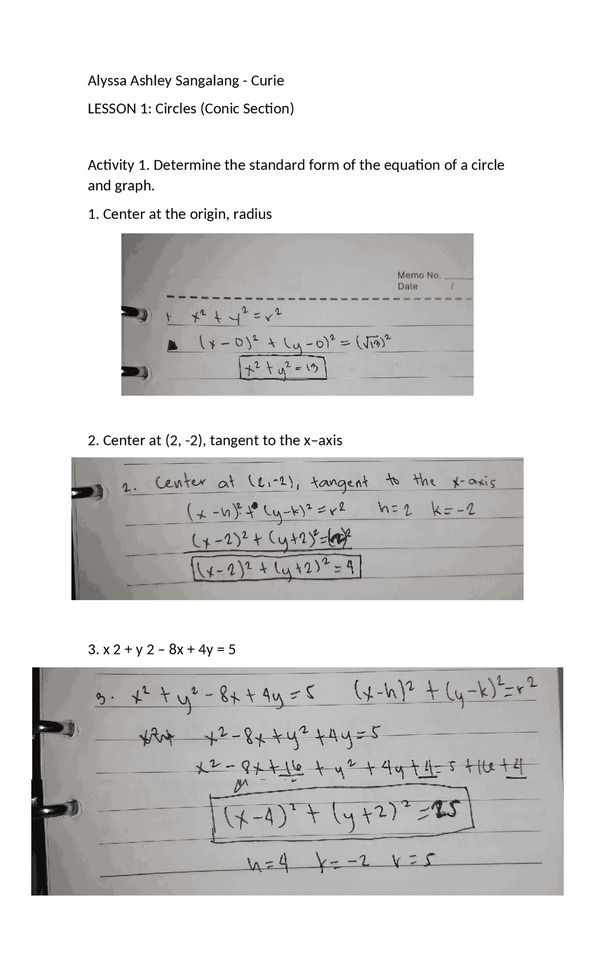 Alyssa Ashley Sangalang - Curie
LESSON 1: Circles (Conic Section)
Activity 1. Determine the standard form of the equation of a circle
and graph.
1. Center at the origin, radius
Memo No.
Date /
1. x² + y² = r²
(x-0)² + (y-0)² = (√13)²
x² + y² = 13
2. Center at (2, -2), tangent to the x–axis
2. Center at (2,-2), tangent to the x-axis
(x-h)² + (y-k)² = r² h=2 k=-2
(x-2)² + (y+2)² = (2)²
(x-2)² + (y+2)² = 4
3. x 2 + y 2 – 8x + 4y = 5
3. x² + y² - 8x + 4y = 5 (x-h)² + (y-k)² = r²
x² - 8x + y² + 4y = 5
x² - 8x + 16 + y² + 4y + 4 = 5 + 16 + 4
(x-4)² + (y+2)² = 25
h=4 k=-2 r=5